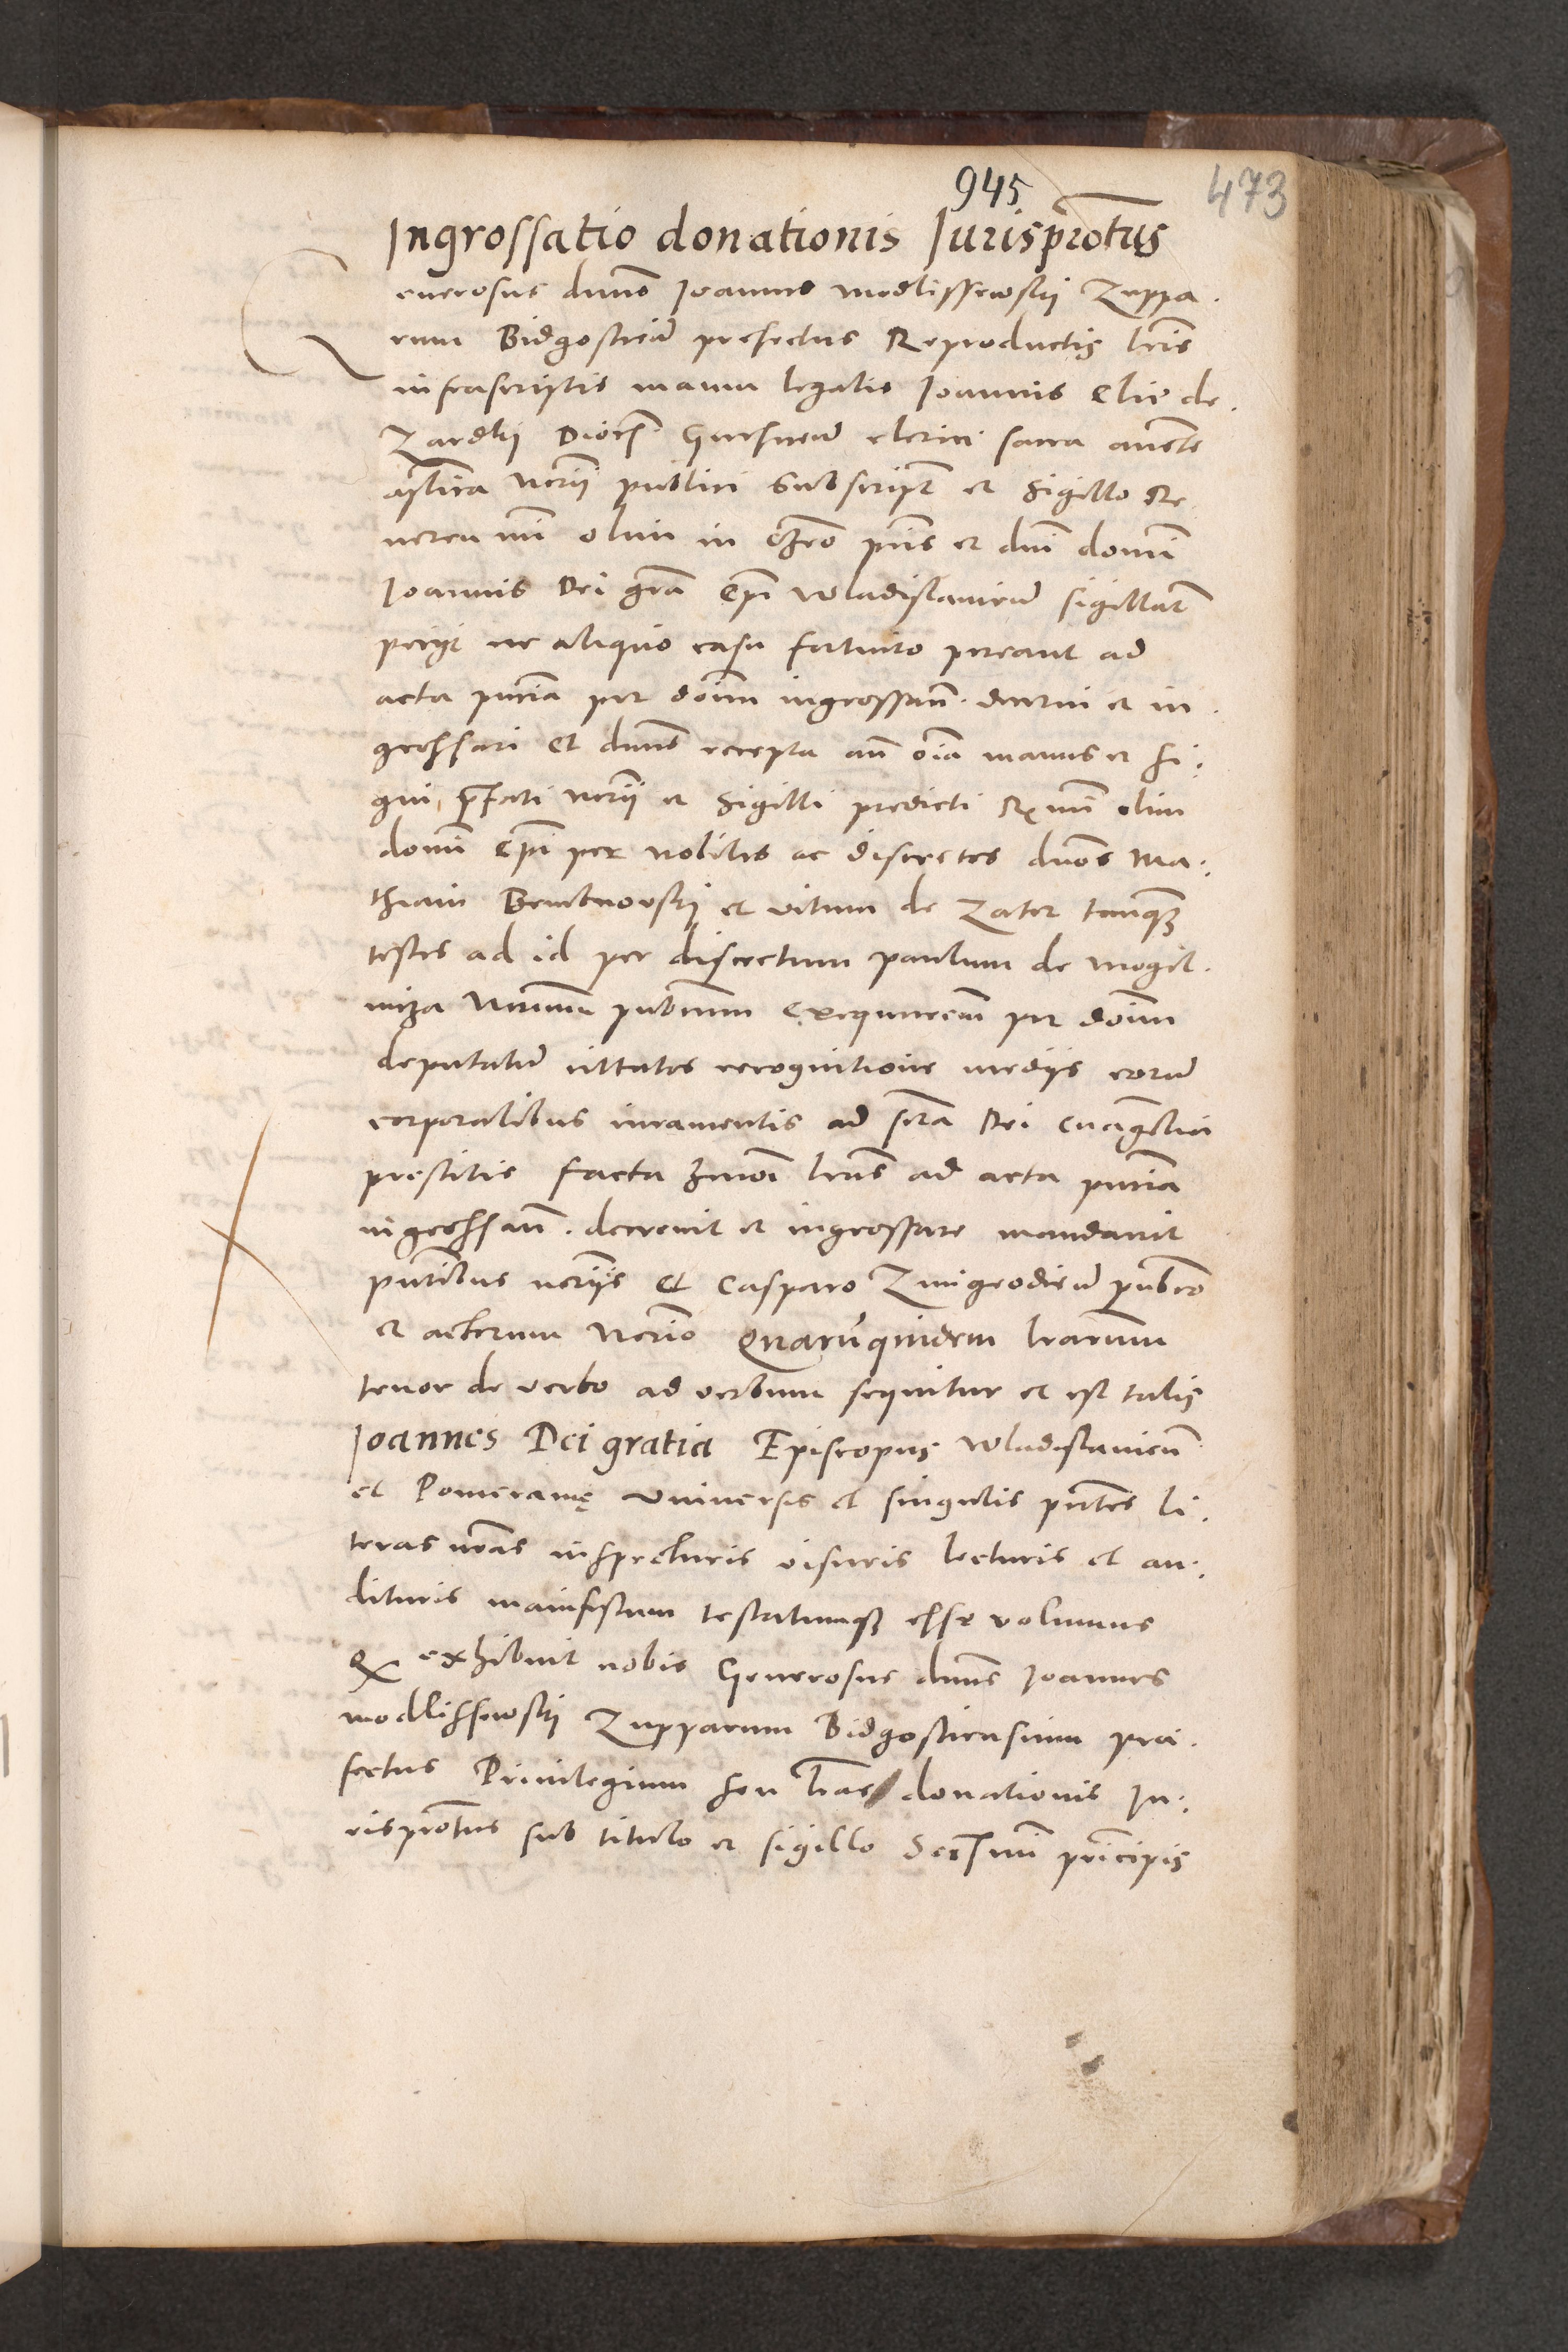 945
473
Ingrossatio donationis Iurisprontus
Generosus dnus Ioannes Modlissewskij Zuppa.
rum Bidgosticn prefectus Reproductis lris
infrascriptis manu legalis Ioannis Elie de.
Dioces Gnesnen clerici sacra aucte
aplica Notarii publici subscript et sigillo Re
in Christo pris et dni domi
Ioannis Dei gra Epi Wladislavien sigillat
petijt ne aliquo casu fortuito pereant ad
acta pntia per Doim ingrossan. decerni et in.
grossari Et dnus recepta an oia manus et si:
gni, prefati Notarii et sigilli predicti Rmi olim
domi Epi per nobiles ac discretos dnos Ma:
thiam Bembnowskij et Vitum de Zator tanquam
testes ad id per discretum Paulum de Mogil.
nicza publicum per Doim
deputatum citatos recognitione medijs eorum
corporalibus iuramentis ad scta Dei Evangelia
prestitis facta lras ad acta pntia
ingrossan. decrevit et ingrossare mandavit
pntibus notariis Et Casparo Zmigrodien publico
et actorum Notario Quarumquidem lrarum
tenor de verbo ad verbum sequitur et est talis
Ioannes Dei gratia Episcopus Wladislavien
et Pomeranię Universis et singulis pntes li.
teras nras inspecturis visuris lecturis et au:
dituris manifestum testatumque esse volumus
Quia exhibuit nobis Generosus dnus Ioannes
Modlissewskij Zupparum Bidgosticnsium prae.
fectus Privilegium seu lras donationis Iu:
risprontus sub titulo et sigillo Serenmi principis